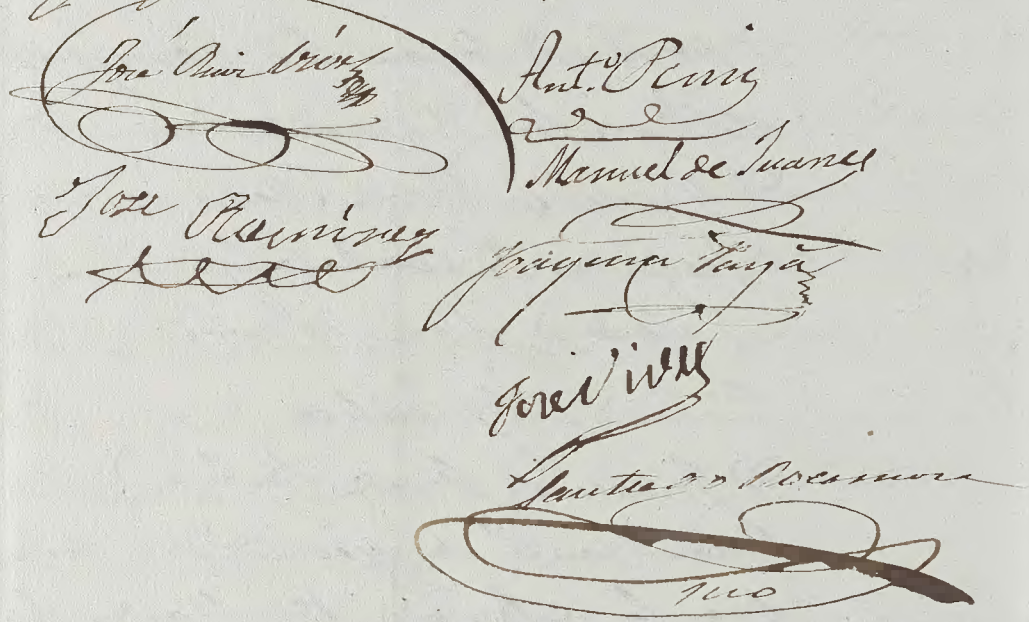 José Vives
José Ramirez
Ant.º
Manuel de Juanes
Joaquin Payá
José Vives
Santiago Rocamora